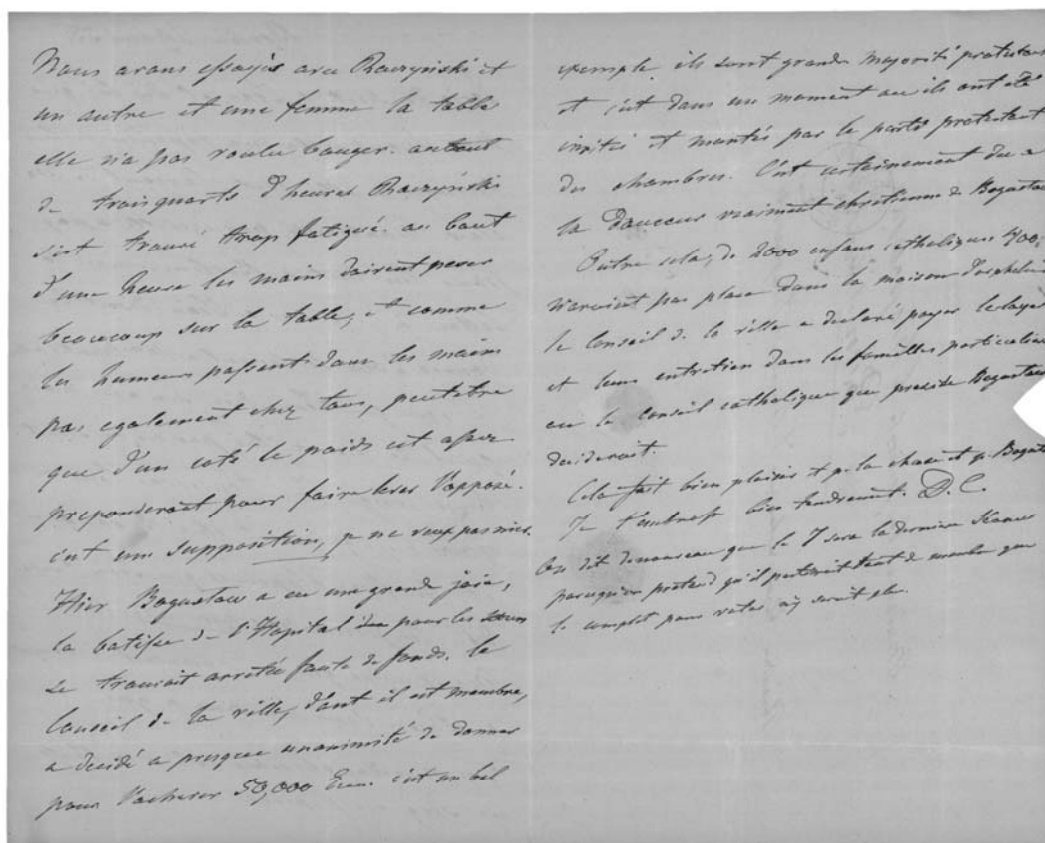 Nous avons essayés avec Raczyński et
un autre et une femme la table
elle n'a pas voulu bouger. au bout
de trois quarts d'heures Raczyński
s'est trouvé trop fatigué. au bout
d'une heure les mains doivent peser
beaucoup sur la table, et comme
les humeurs passent dans les mains
pas egalement chez tous, peutetre
que d'un coté le poids est assez
preponderant pour faire lever l'opposé.
c'est une supposition, je ne veux pas nier.
Hier Bogusław a eu une grande joie,
la batisse de l'Hopital pour les
se trouvoit arretée faute de fonds. le
Conseil de la ville, dont il est membre,
a decidé a presque unanimité de donner
pour l'achever 50,000 Ecus. c'est un bel
exemple, ils sont grande majorité protestans
et c'est dans un moment ou ils ont été
invités et montés par le parti protestant
des chambres. C'est certainement du a
la douceur vraiment chretienne de Bogusław
Outre cela, de 2000 enfans catholiques 400,
n'avoient pas place dans la maison d'orphelins
le Conseil de la ville a declaré payer
et leur entretien dans les familles particulieres
ou le conseil catholique que preside Bogusław
decideroit.
Cela fait bien plaisir et p. la chose et p. Bogusł
Je t'embrasse bien tendrement. D. C.
On dit denouveau que le 7 sera la derniere Séance
parcequ'on pretend qu'il partiroit tant de membre que
le complet pour voter n'y seroit plus.